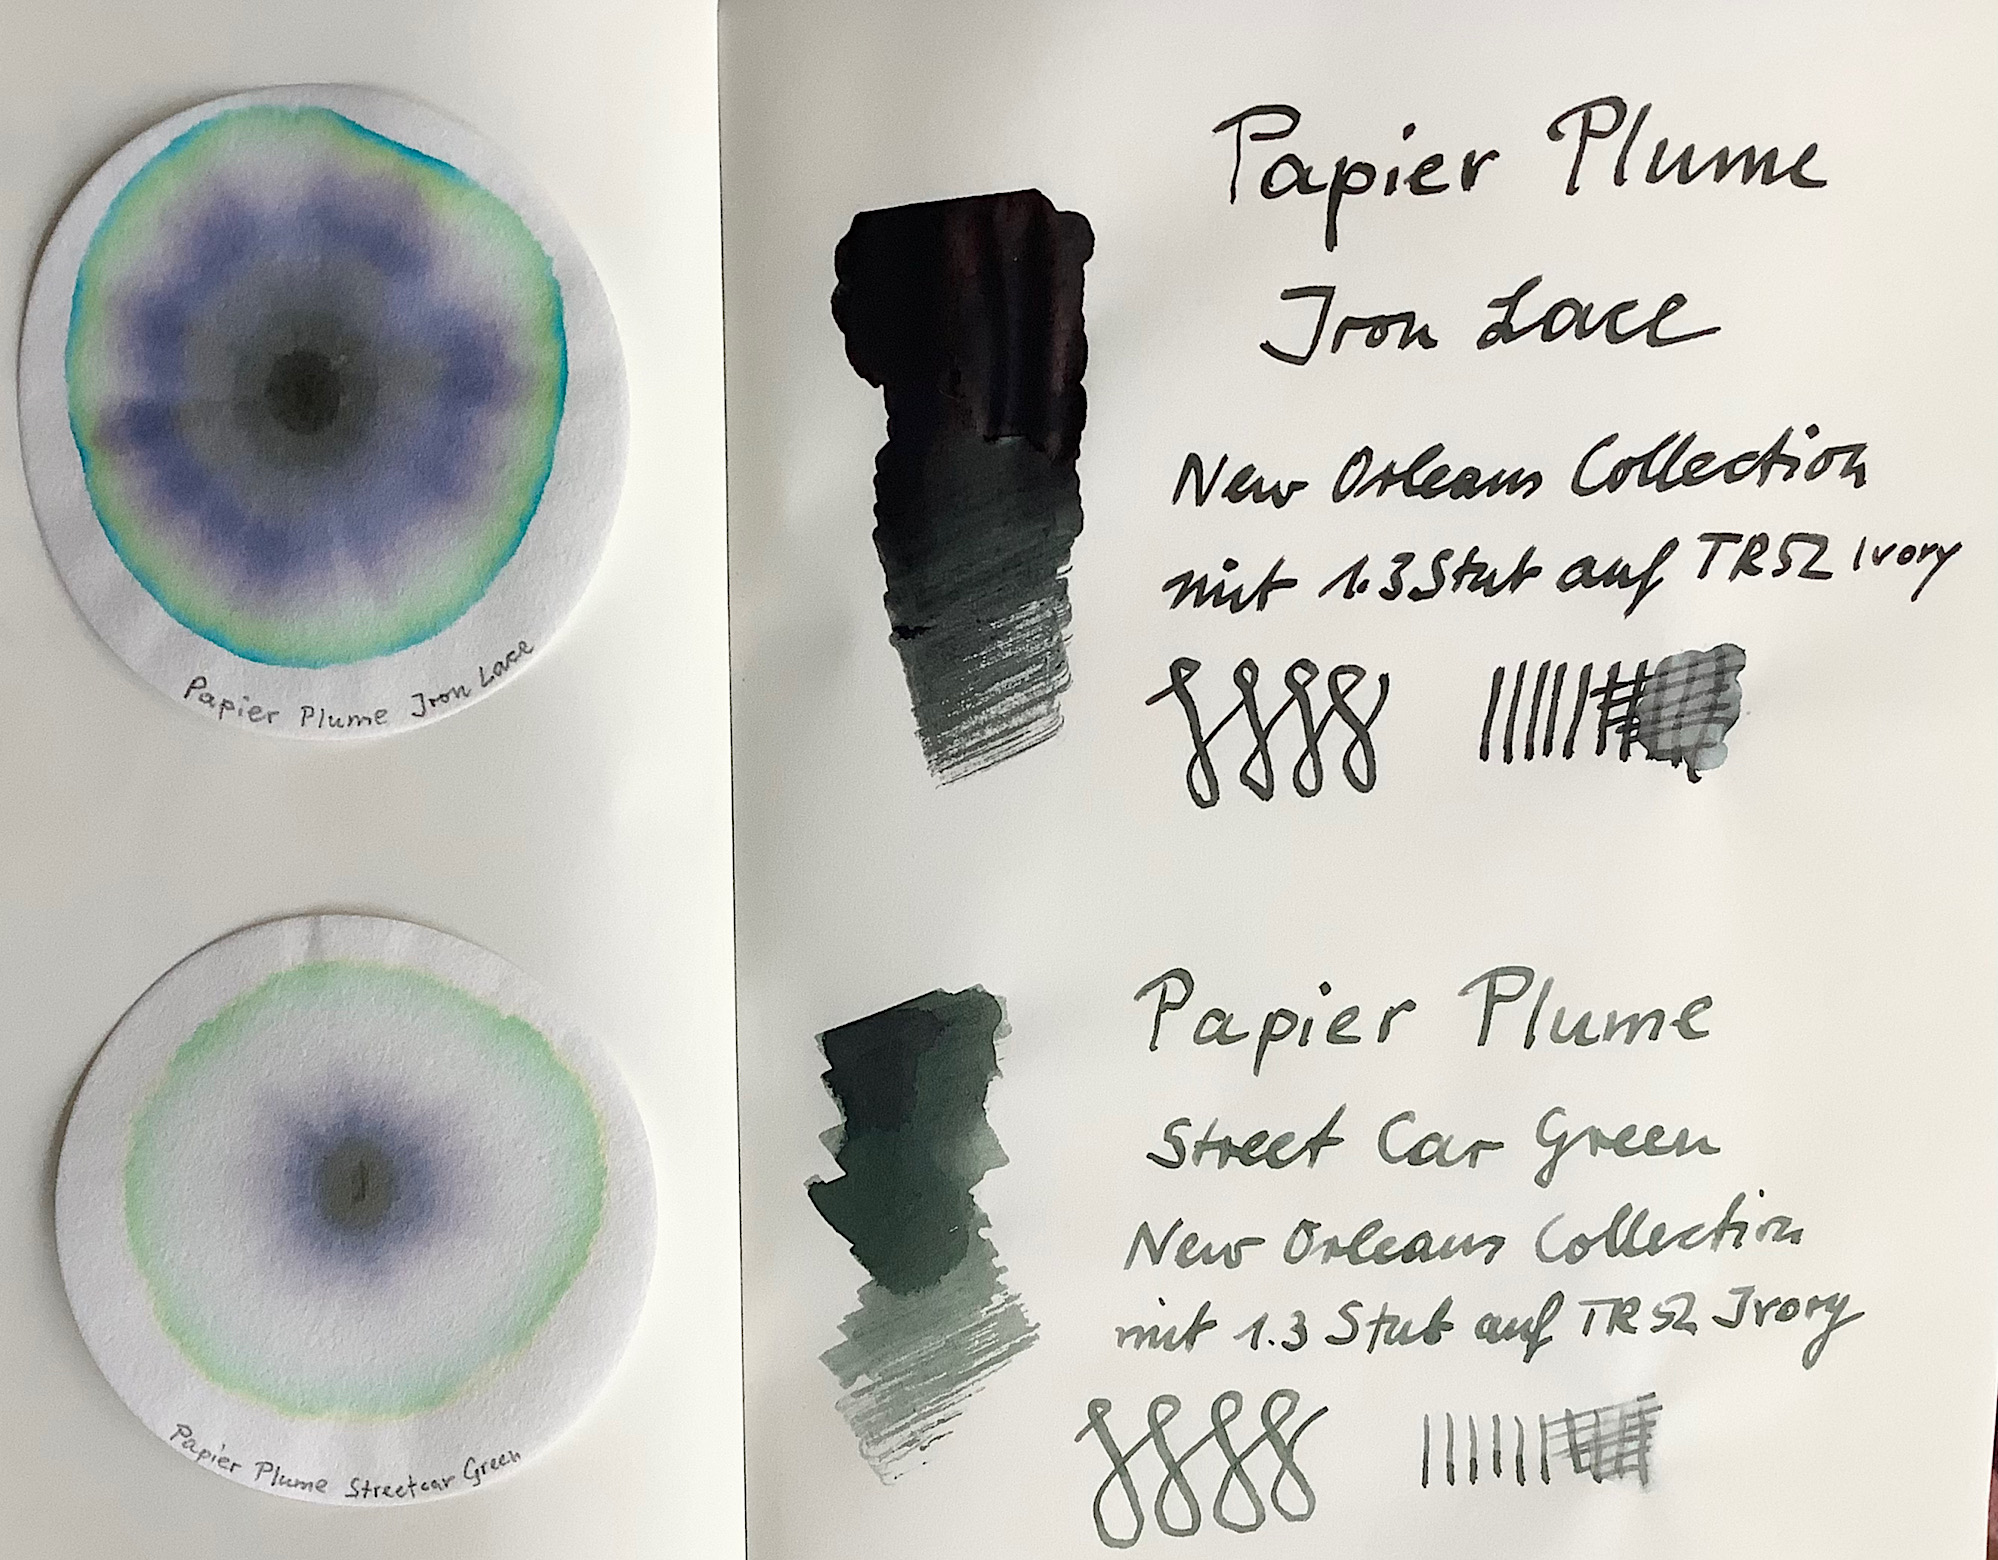 Papier Plume Iron Lace
Papier Plume
Iron Lace
New Orleans Collection
mit 1.3 Stub auf TR52 Ivory
Papier Plume Streetcar Green
Papier Plume
Street Car Green
New Orleans Collection
mit 1.3 Stub auf TR52 Ivory